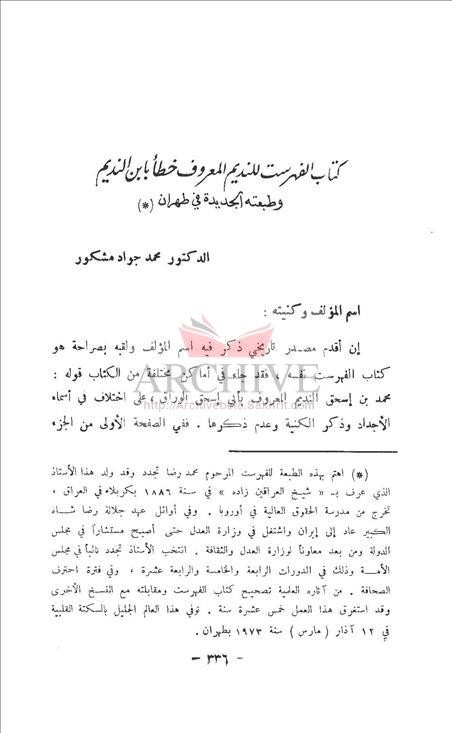 كتاب الفهرست للنديم المعروف خطأ بابن النديم
وطبعته الجديدة في طهران (*)
الدكتور محمد جواد مشكور
اسم المؤلف وكنيته :
إن أقدم مصدر تاريخي ذكر فيه اسم المؤلف ولقبه بصراحة هو
كتاب الفهرست نفسه ، فقد جاء في أماكن مختلفة من الكتاب قوله :
ARCHIVE
محمد بن إسحق النديم المعروف بأبي إسحق الوراق ، على اختلاف في أسماء
http://Archivebeta.Sakhrit.com
الأجداد وذكر الكنية وعدم ذكرها . ففي الصفحة الأولى من الجزء
(*) اهتم بهذه الطبعة للفهرست المرحوم محمد رضا تجدد وقد ولد هذا الأستاذ
الذي عرف بـ « شيخ العراقين زاده » في سنة ١٨٨٦ بكربلاء في العراق ،
تخرج من مدرسة الحقوق العالية في أوروبا . وفي أوائل عهد جلالة رضا شاه
الكبير عاد إلى إيران واشتغل في وزارة العدل حتى أصبح مستشاراً في مجلس
الدولة ومن بعد معاوناً لوزارة العدل والثقافة . انتخب الأستاذ تجدد نائباً في مجلس
الأمة وذلك في الدورات الرابعة والخامسة والرابعة عشرة ، وفي فترة احترف
الصحافة . من آثاره العلمية تصحيح كتاب الفهرست ومقابلته مع النسخ الأخرى
وقد استغرق هذا العمل خمس عشرة سنة . توفي هذا العالم الجليل بالسكتة القلبية
في ١٢ آذار ( مارس ) سنة ١٩٧٣ بطهران .
- ٣٣٦ -